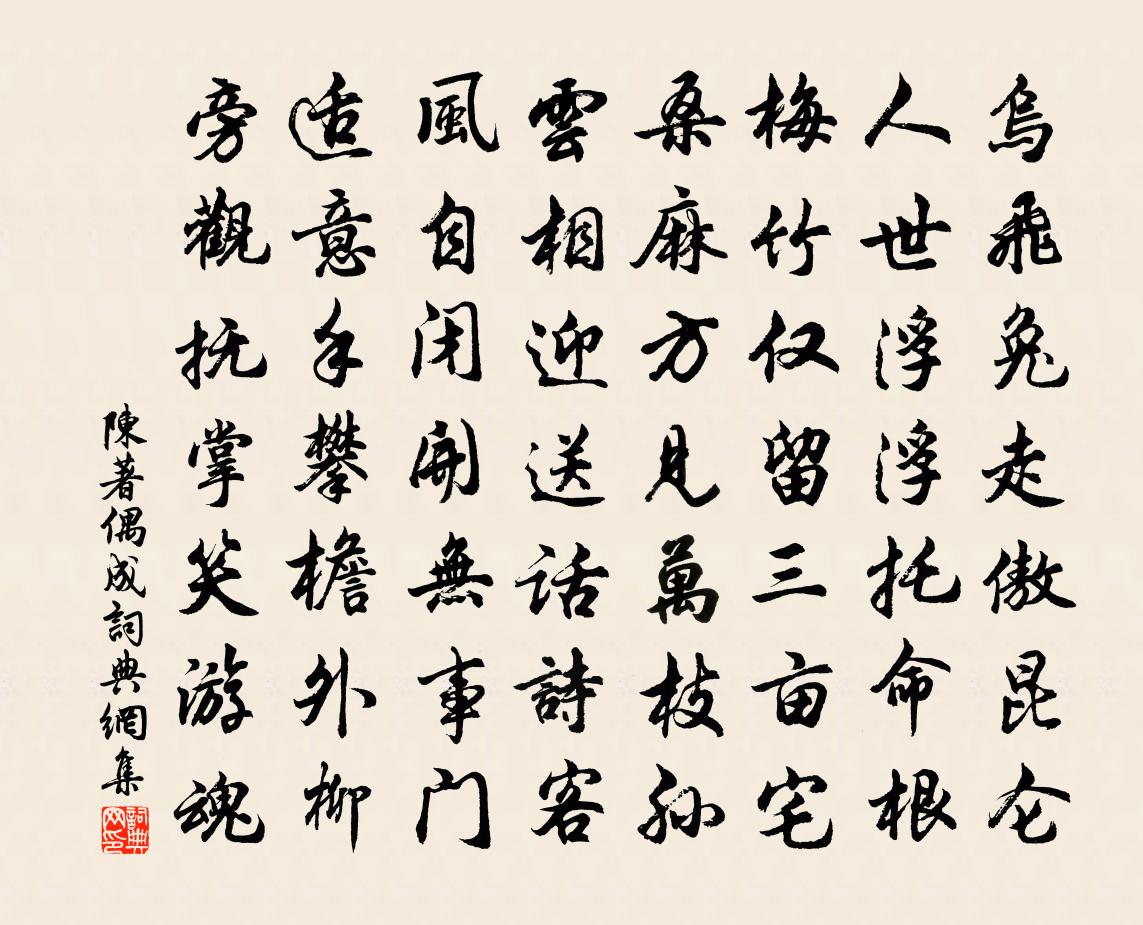 烏飛兔走傲昆仑
人世浮浮托命根
梅竹仅留三亩宅
桑麻方見萬枝孙
雲相迎送話詩客
風自闭開無事门
适意手攀檐外柳
旁觀抚掌笑游魂
陳著偶成詞典網集
詞典网印